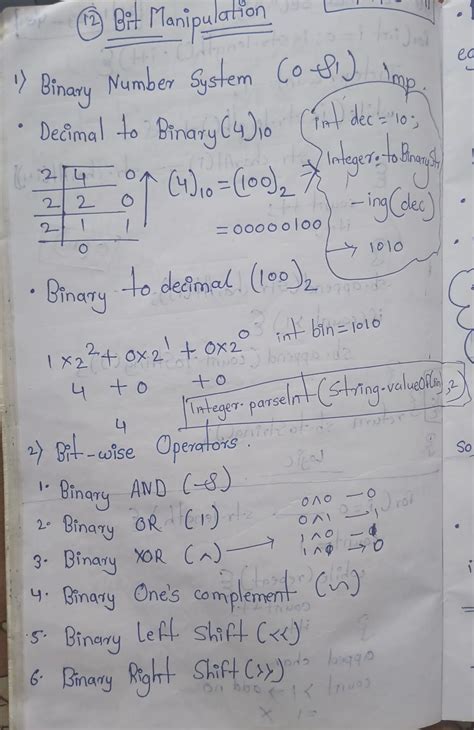 (12) Bit Manipulation
1) Binary Number System (0-&1) Imp.
• Decimal to Binary (4)10
int dec = 10;
Integer.toBinaryStr
-ing(dec)
→ 1010
2 | 4 0
2 | 2 0
2 | 1 1
0
(4)10 = (100)2 ⇒
= 00000100
• Binary to decimal (100)2
1x2^2 + 0x2^1 + 0x2^0
int bin = 1010
4 + 0 + 0
4
Integer.parseInt(String.valueOf(bin),2)
2) Bit-wise Operators.
1. Binary AND (-&)
2. Binary OR (|)
3. Binary XOR (^) →
0^0 — 0
0^1 — 1
4. Binary One's complement (~)
5. Binary Left Shift (<<)
6. Binary Right Shift (>>)